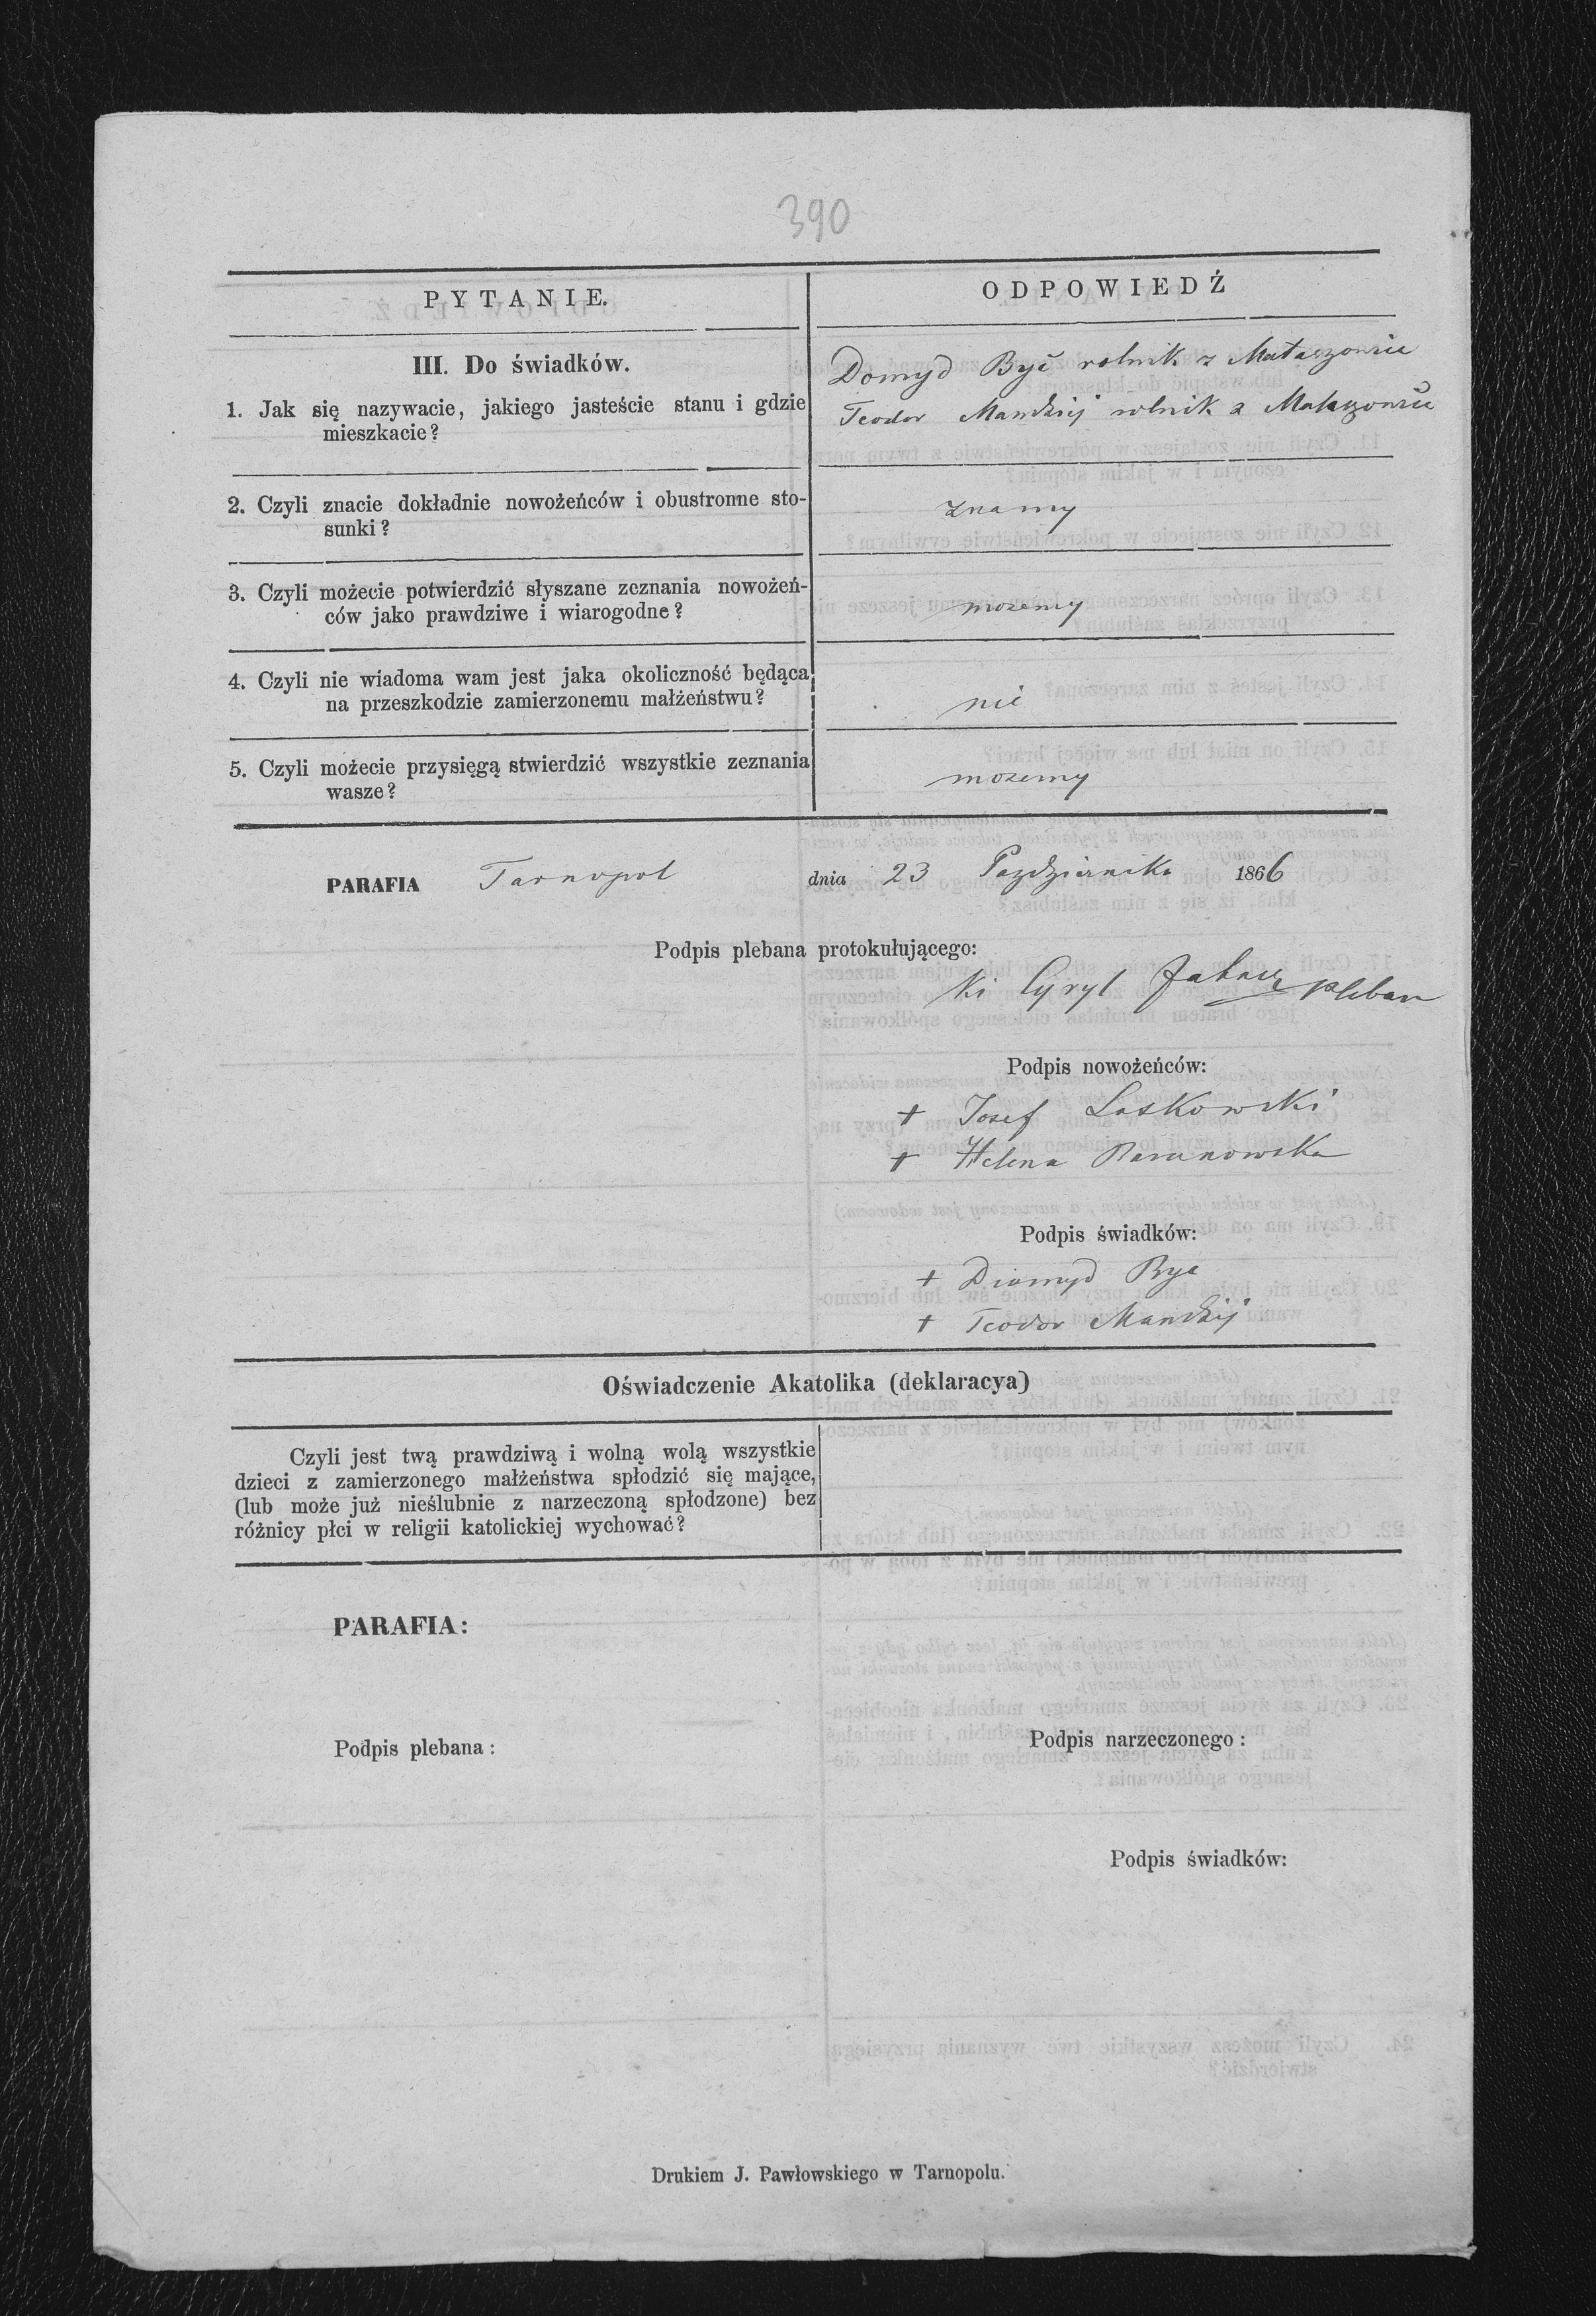 390
PYTANIE.
ODPOWIEDŹ
III. Do świadków.
1. Jak się nazywacie, jakiego jasteście stanu i gdzie
mieszkacie?
Domyd Być rolnik z
Teodor Mandzij rolnik z
2. Czyli znacie dokładnie nowożeńców i obustronne sto-
sunki?
znamy
3. Czyli możecie potwierdzić słyszane zeznania nowożeń-
ców jako prawdziwe i wiarogodne?
mozemy
4. Czyli nie wiadoma wam jest jaka okoliczność będąca
na przeszkodzie zamierzonemu małżeństwu?
nie
5. Czyli możecie przysięgą stwierdzić wszystkie zeznania
wasze?
mozemy
PARAFIA Tarnopol dnia 23 Pazdziernika 1866
Podpis plebana protokułującego:
Cyryl pleban
Podpis nowożeńców:
+ Josef Laskowski
+ Helena Baranowska
Podpis świadków:
+ Diomyd Byc
+ Teodor Mandzij
Oświadczenie Akatolika (deklaracya)
Czyli jest twą prawdziwą i wolną wolą wszystkie
dzieci z zamierzonego małżeństwa spłodzić się mające,
(lub może już nieślubnie z narzeczoną spłodzone) bez
różnicy płci w religii katolickiej wychować?
PARAFIA:
Podpis plebana:
Podpis narzeczonego:
Podpis świadków:
Drukiem J. Pawłowskiego w Tarnopolu.